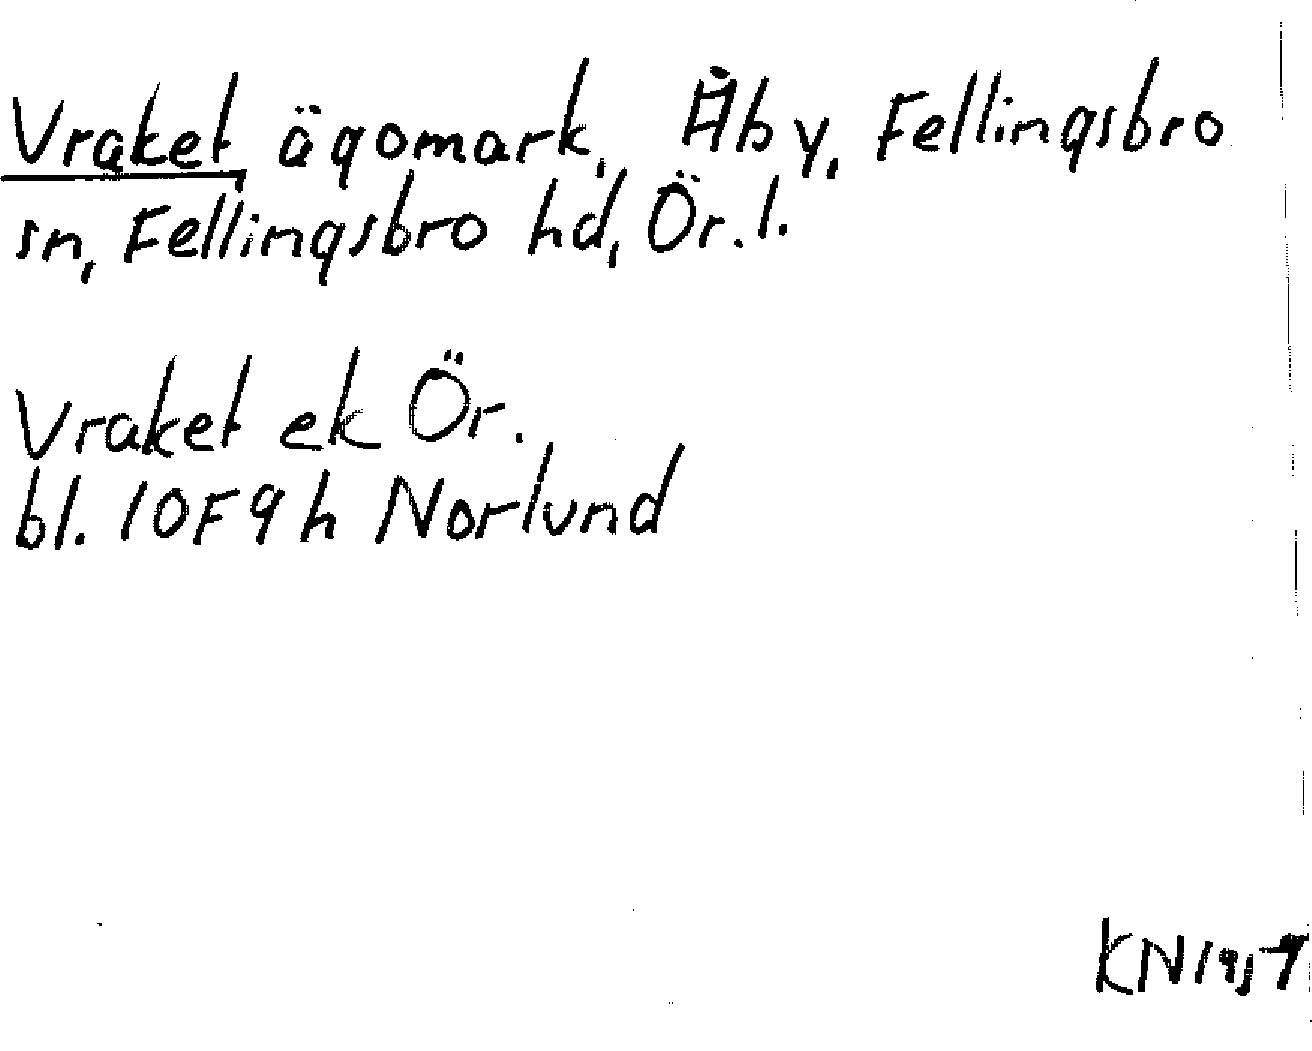 Vraket, ägomark, Åby, Fellingsbro
sn, Fellingsbro hd, Ör. l.
Vraket ek Ör.
bl. 10F9h Norlund